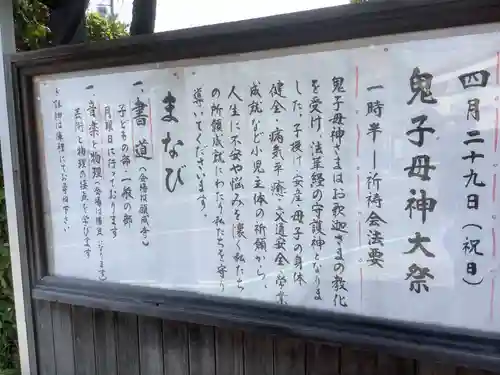 四月二十九日（祝日）
鬼子母神大祭
一時半ー祈祷会法要
鬼子母神さまはお釈迦さまの教化
を受け、法華経の守護神となりま
した。子授け・安産・母子の身体
健全・病気平癒・交通安全・学業
成就など小児主体の祈願から、
人生に不安や悩みを濃く私たち
の所願成就にわたり私たちを守り
導いてくださいます。
まなび
一、書道（会場は願成寺）
子どもの部・一般の部
月曜日に行っております
一、音楽と物理（会場は
芸術と物理の接点を学びます
にてお尋ね下さい